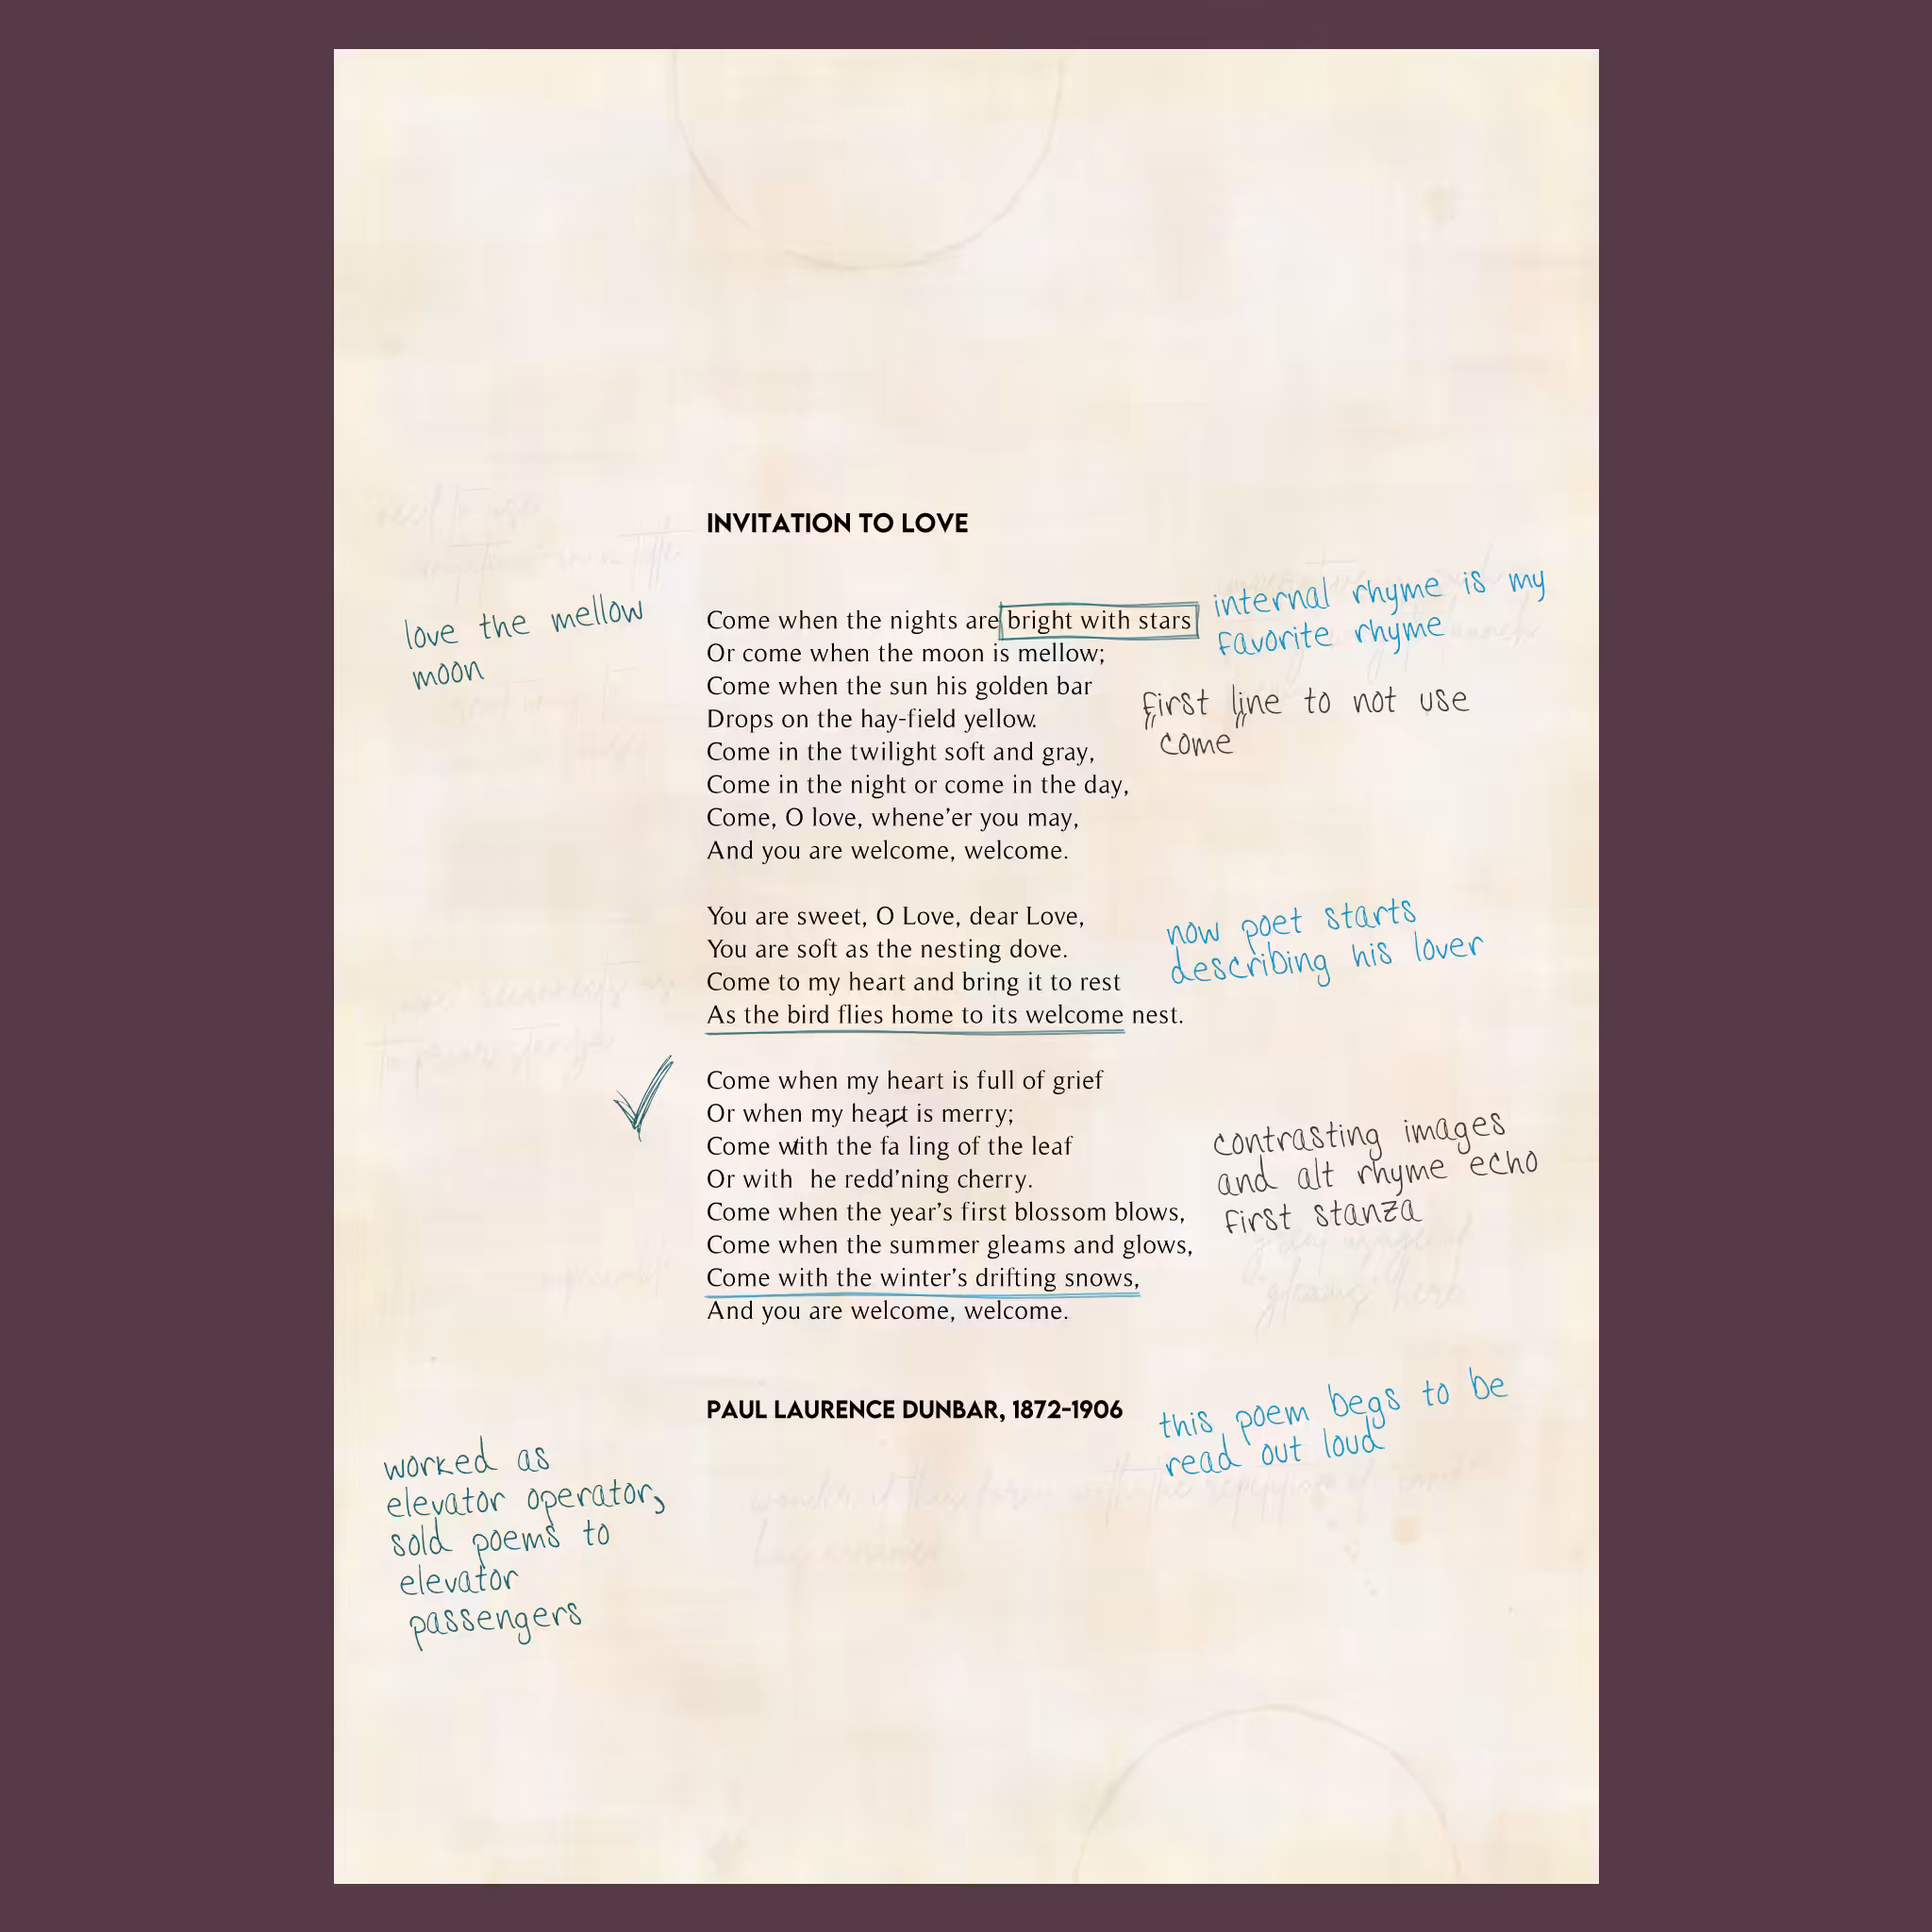 INVITATION TO LOVE
love the mellow
moon
Come when the nights are bright with stars
Or come when the moon is mellow;
Come when the sun his golden bar
Drops on the hay-field yellow.
Come in the twilight soft and gray,
Come in the night or come in the day,
Come, O love, whene'er you may,
And you are welcome, welcome.
internal rhyme is my
favorite rhyme
first line to not use
"come"
You are sweet, O Love, dear Love,
You are soft as the nesting dove.
Come to my heart and bring it to rest
As the bird flies home to its welcome nest.
now poet starts
describing his lover
Come when my heart is full of grief
Or when my heart is merry;
Come with the fa ling of the leaf
Or with he redd'ning cherry.
Come when the year's first blossom blows,
Come when the summer gleams and glows,
Come with the winter's drifting snows,
And you are welcome, welcome.
contrasting images
and alt rhyme echo
first stanza
PAUL LAURENCE DUNBAR, 1872-1906
this poem begs to be
read out loud
worked as
elevator operator,
sold poems to
elevator
passengers